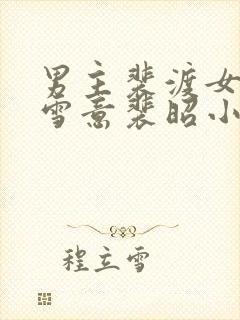 男主裴渡女
雪意裴昭小
程立雪